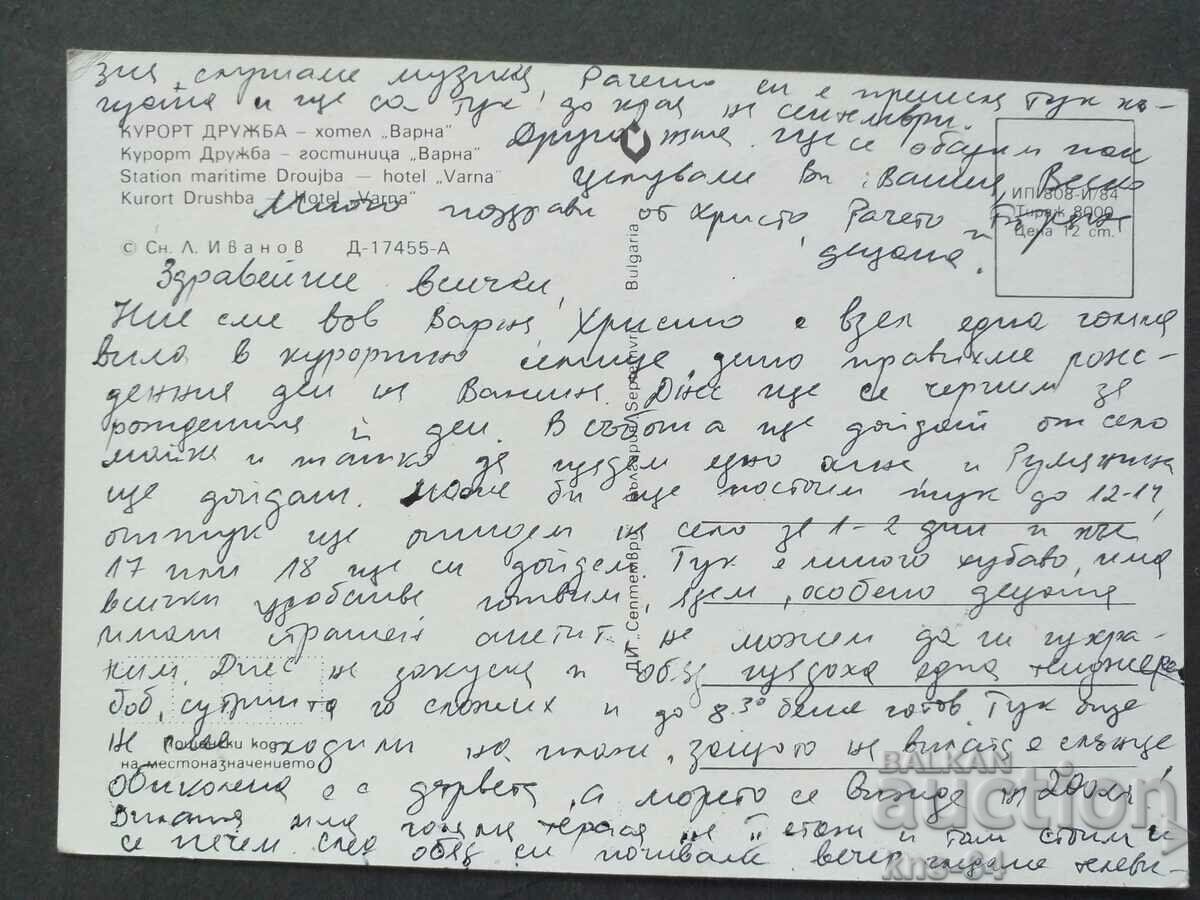 зия, слушаме музика, Рачето си е приписа тук ка-
и ще са тук до края на септември.
КУРОРТ ДРУЖБА – хотел „Варна"
Курорт Дружба – гостиница „Варна"
Station maritime Droujba – hotel „Varna"
Kurort Drushba – Hotel „Varna"
© Сн. Л. Иванов Д-17455-А
Друго ще се обадим пак
целували Ви: Вания, Веско
Много поздрави от Христо, Рачето
и децата.
ИП 808-И/84
Тираж 8000
Цена 12 ст.
ДИ „Септември" България/Septemvri Bulgaria
Здравейте всички,
Ние сме във Варна, Христо е взел една голяма
вила в курортно селище дето правихме рож-
денния ден на Ваньы. Днес ще се черпим за
рождения й ден. В събота ще дойдат от село
майка и татко да гледам едно агне и Румянина
ще дойдат. Може би ще постоим тук до 12-14,
оттук ще отидем на село за 1-2 дни и към
17 или 18 ще си дойдем. Тук е много хубаво, има
всички удобства готвим, ядем, особено децата
имат страшен апетит не можем да ги нахра-
ним. Днес на закуска и обяд изядоха една тенджера
боб, сутринта го сложих и до 8.30 беше готов. Тук още
не сме ходили на плаж, защото на вилата е слънце
Пощенски код
на местоназначението
обиколена е с дървета, а морето се вижда на 200 м.
Вилата има голяма тераса на II етаж и там стоим и
се печем. след обяд си почиваме вечер гледаме телеви-
BALKAN
auction
kns-64